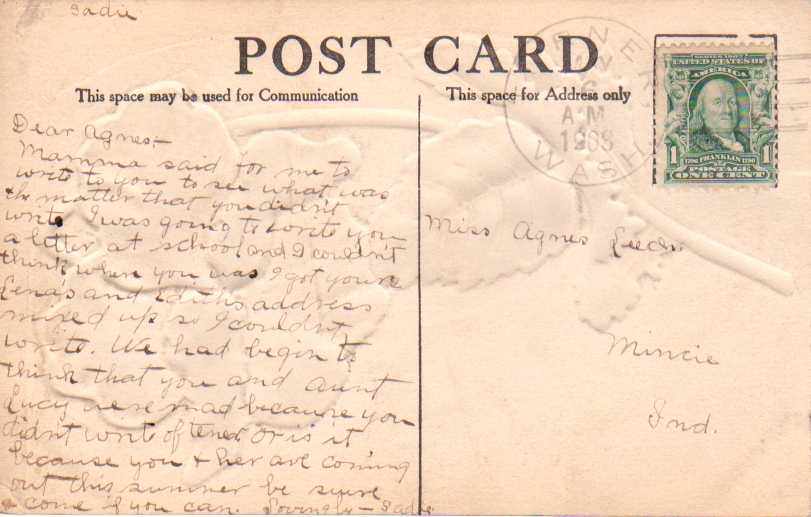 Sadie
POST CARD
This space may be used for Communication
This space for Address only
A M
1908
WASH
UNITED STATES OF
AMERICA
1790 FRANKLIN 1790
1 1
POSTAGE
ONE CENT
Dear Agnes—
Mamma said for me to
write to you to see what was
the matter that you didn't
write I was going to write you
a letter at school and I couldn't
think when you was I got yours
Lena's and Edith's address
mixed up so I couldn't
write. We had begin to
think that you and aunt
Lucy were mad because you
didn't write oftener or is it
because you + her are coming
out this summer be sure
+ come if you can. Lovingly — Sadie
Miss Agnes
Mincie
Ind.